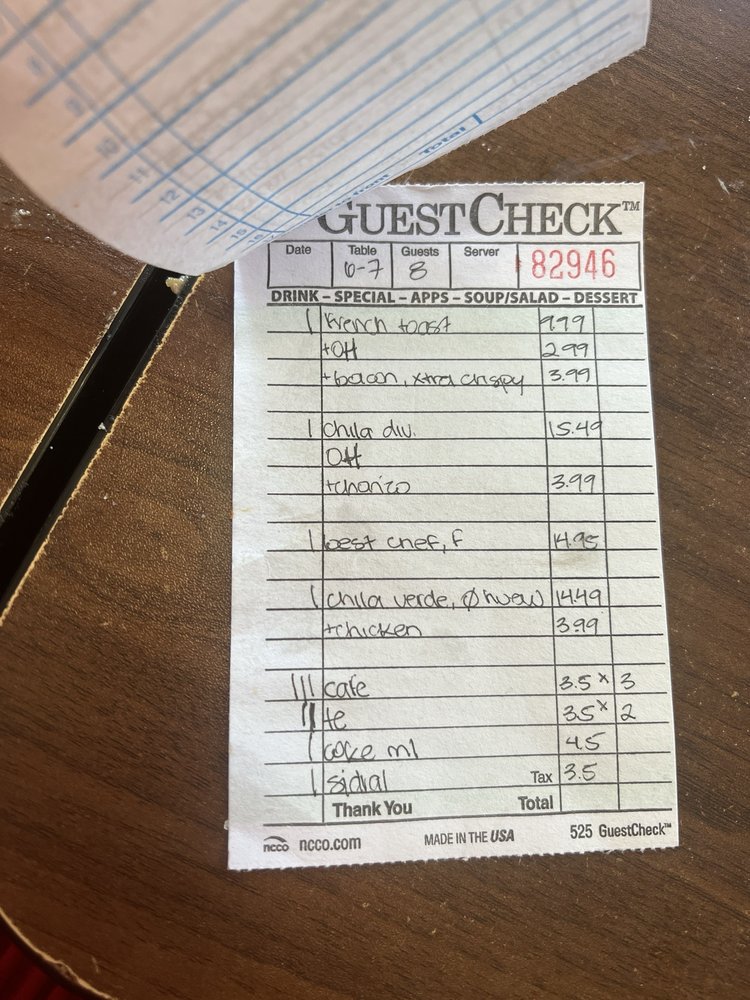 Total
11
12
13
14
15
GUEST CHECK™
Date Table Guests Server
6-7 8 82946
DRINK – SPECIAL – APPS – SOUP/SALAD – DESSERT
1 french toast 9.99
+OH 2.99
+bacon, xtra crispy 3.99
1 chila div. 15.49
OH
+chorizo 3.99
1 best chef, f 14.95
1 chila verde, Ø huevo 14.49
+chicken 3.99
III cafe 3.5 x 3
II te 3.5 x 2
1 coke ml 4.5
1 sidral Tax 3.5
Thank You Total
ncco ncco.com MADE IN THE USA 525 GuestCheck™